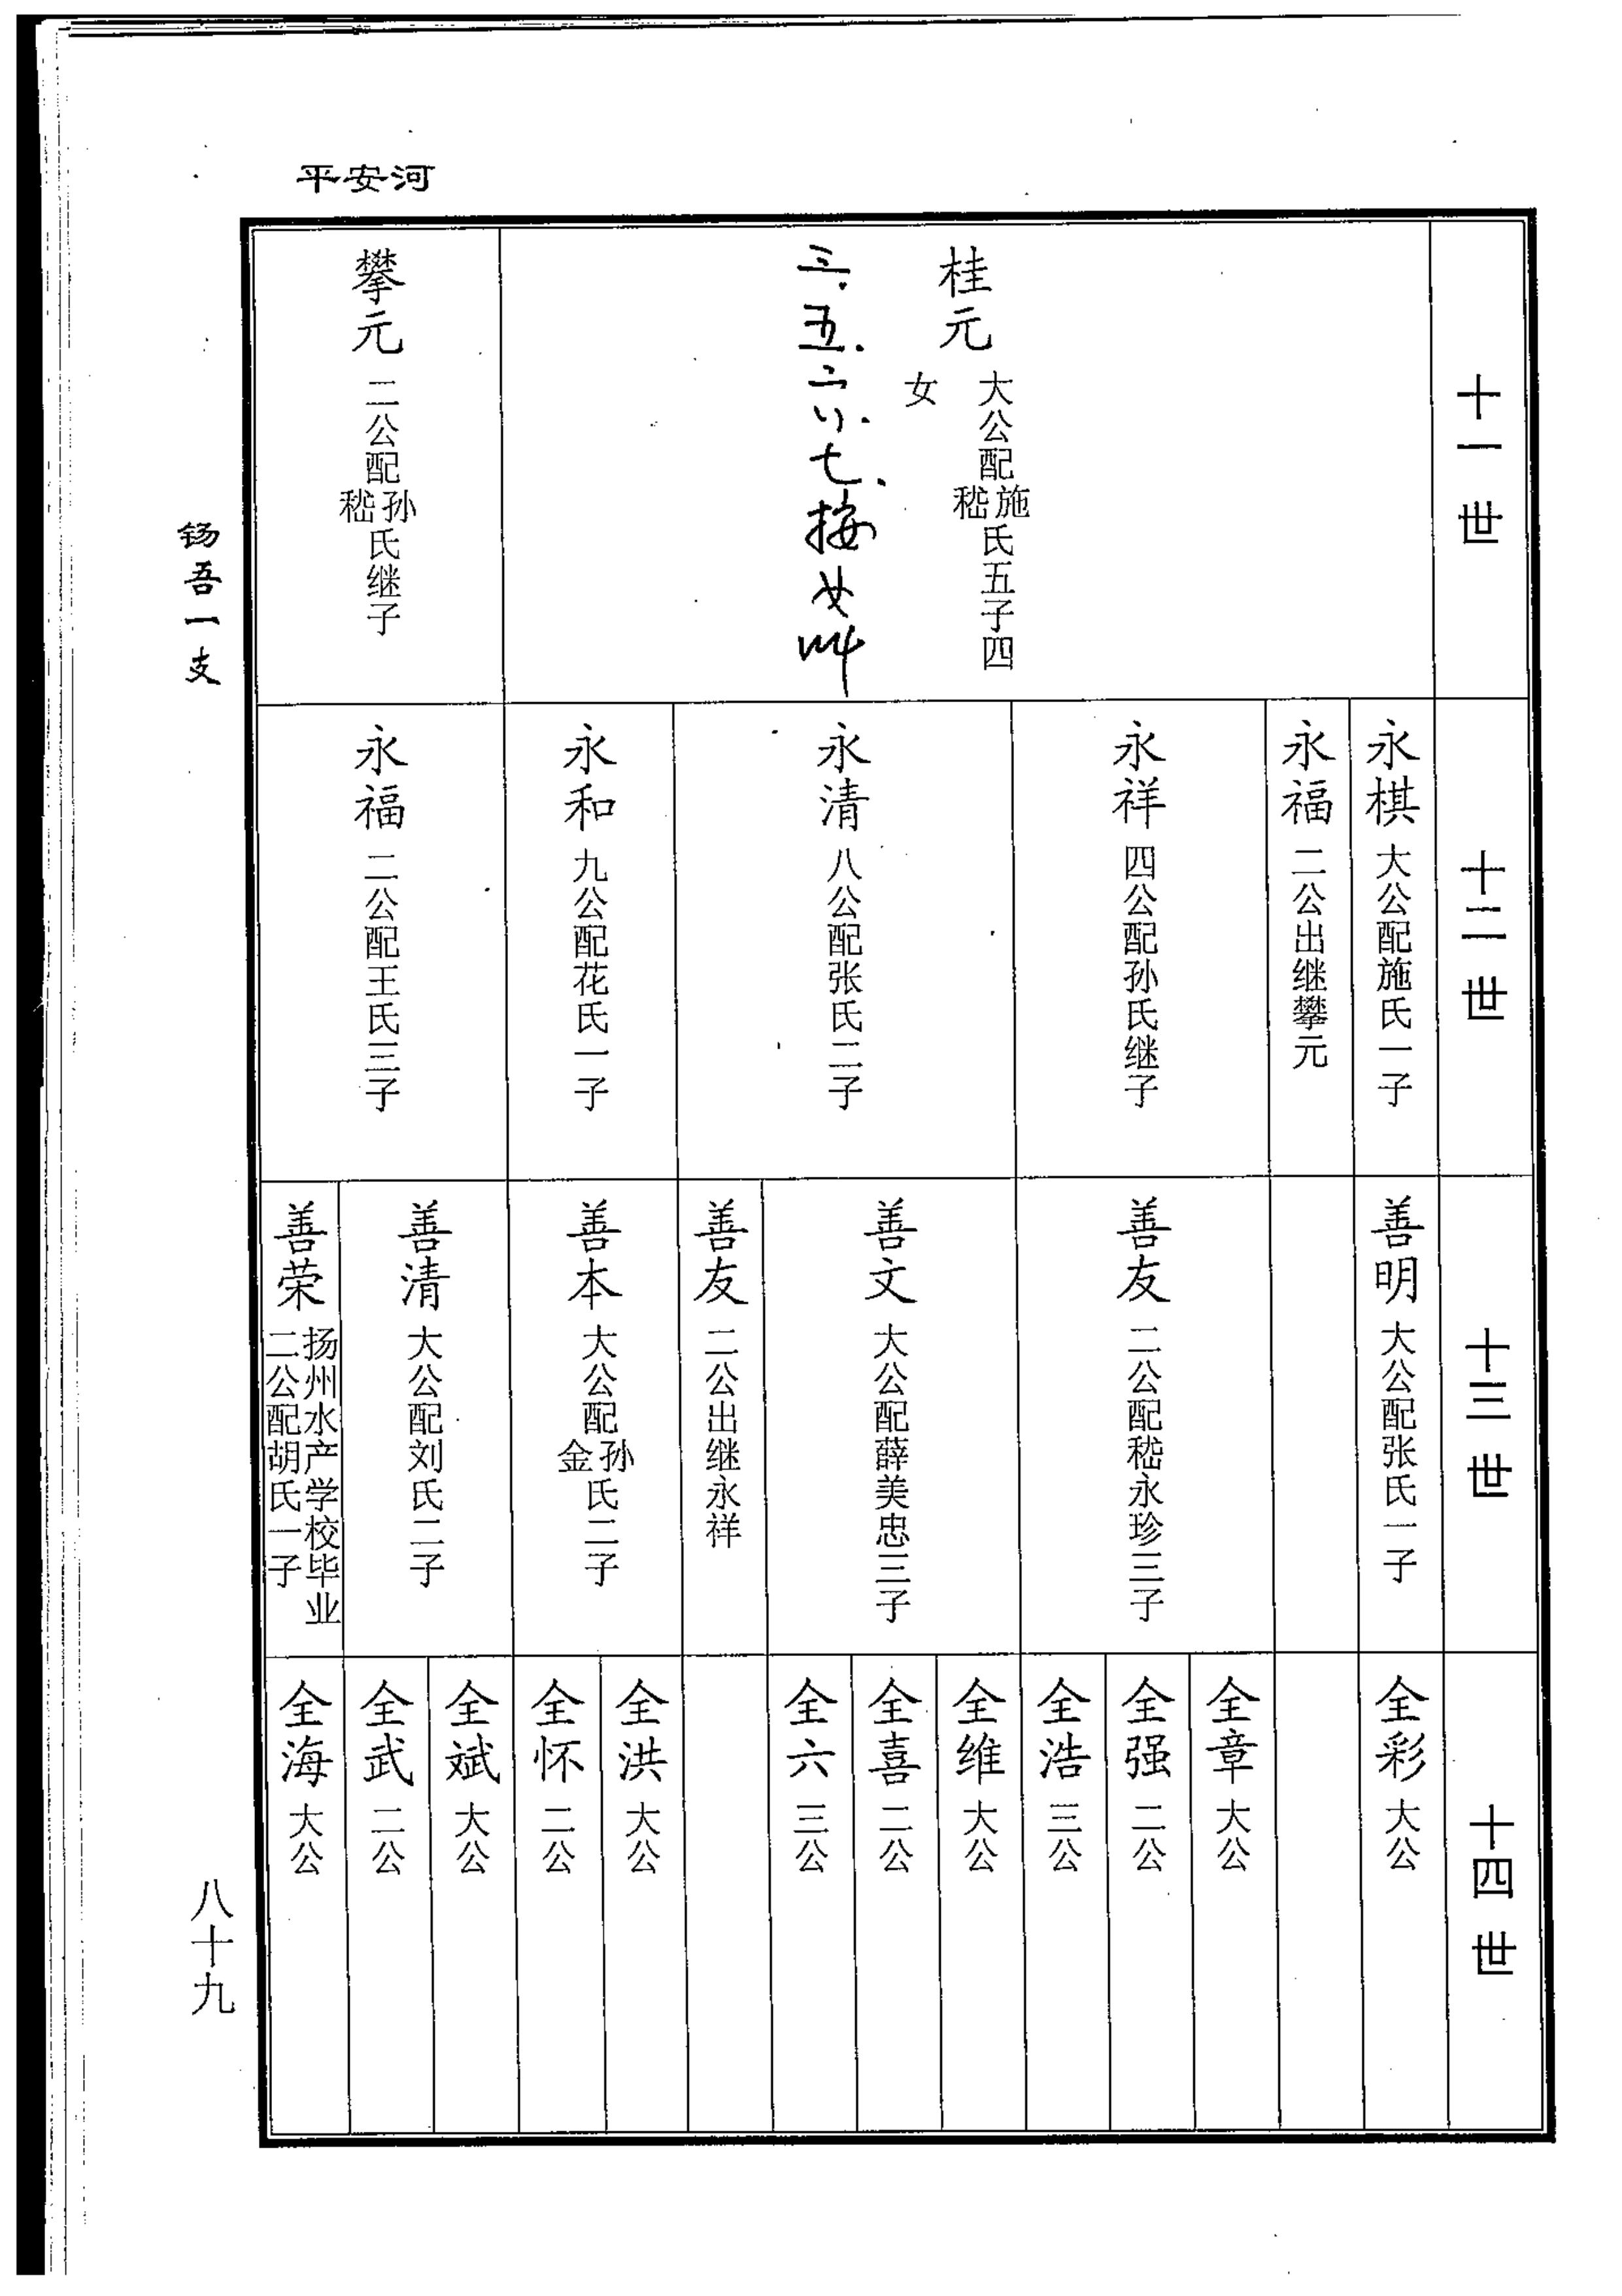 平安河
十一世
桂元 大公配施嵇氏五子四女
三.五.六.七.按女叫
攀元 二公配孙嵇氏继子
十二世
永棋 大公配施氏一子
永福 二公出继攀元
永祥 四公配孙氏继子
永清 八公配张氏二子
永和 九公配花氏一子
永福 二公配王氏三子
十三世
善明 大公配张氏一子
善友 二公配嵇永珍三子
善文 大公配薛美忠三子
善友 二公出继永祥
善本 大公配孙金氏二子
善清 大公配刘氏二子
善荣 扬州水产学校毕业
二公配胡氏一子
十四世
全彩 大公
全章 大公
全强 二公
全浩 三公
全维 大公
全喜 二公
全六 三公
全洪 大公
全怀 二公
全斌 大公
全武 二公
全海 大公
钖吾一支
八十九